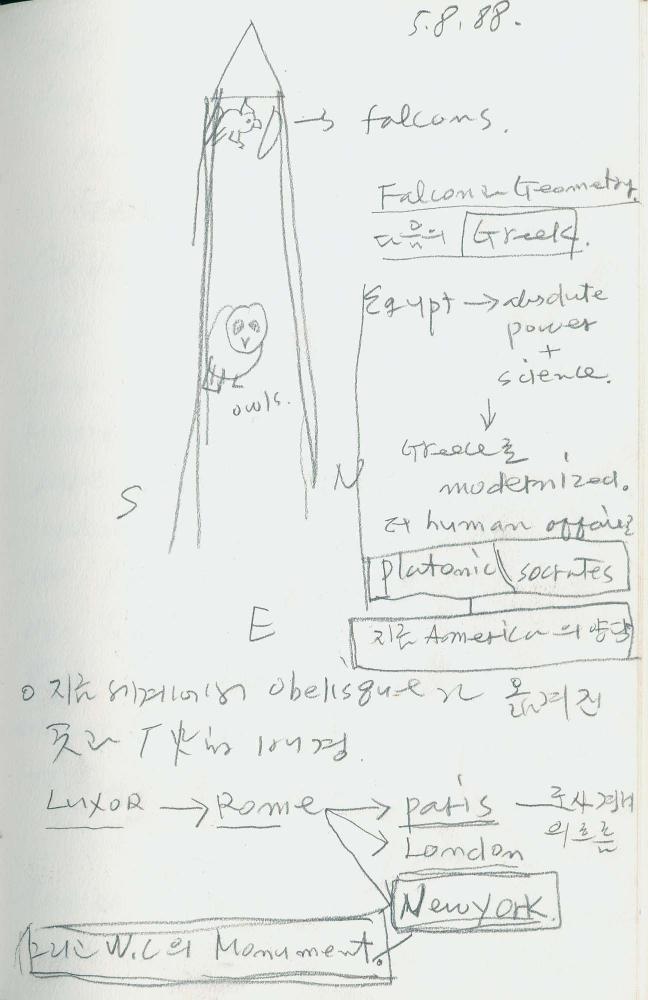 5.8.88.
→ falcons.
Falcon는 Geometry
다음의 Greek.
Egypt → absolute
power
+
science.
↓
Greece를
modernized.
더 human affair로
owls.
N
S
Platonic socrates
지금 America의
E
o 지금 세계에서 Obelisque가 옮겨진
곳과
LUXOR → Rome → paris
의 흐름
London
New york.
그리고 W.C의 Monument.